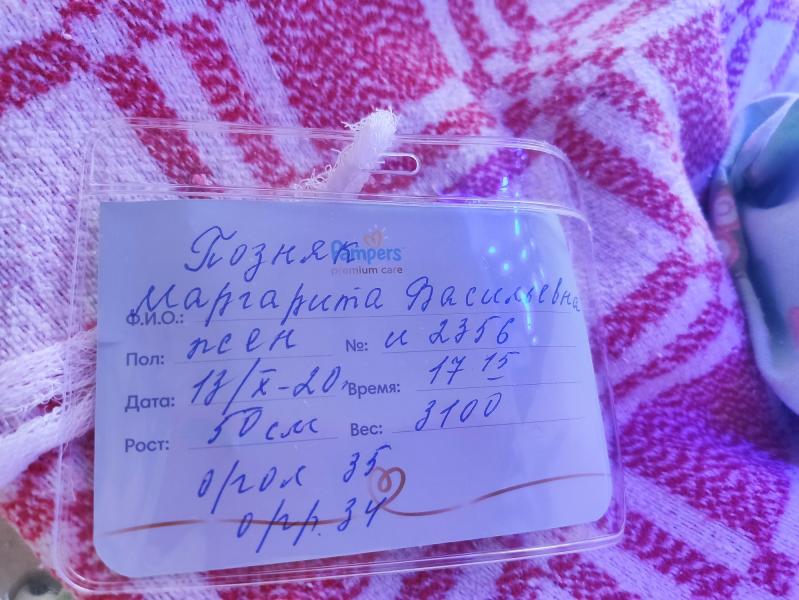 Позняк
Pampers
premium care
Ф.И.О.: Маргарита Васильевна
Пол: жен №: и 2356
Дата: 13/X-20, Время: 17 15
Рост: 50 см Вес: 3100
о/гол 35
о/гр. 34